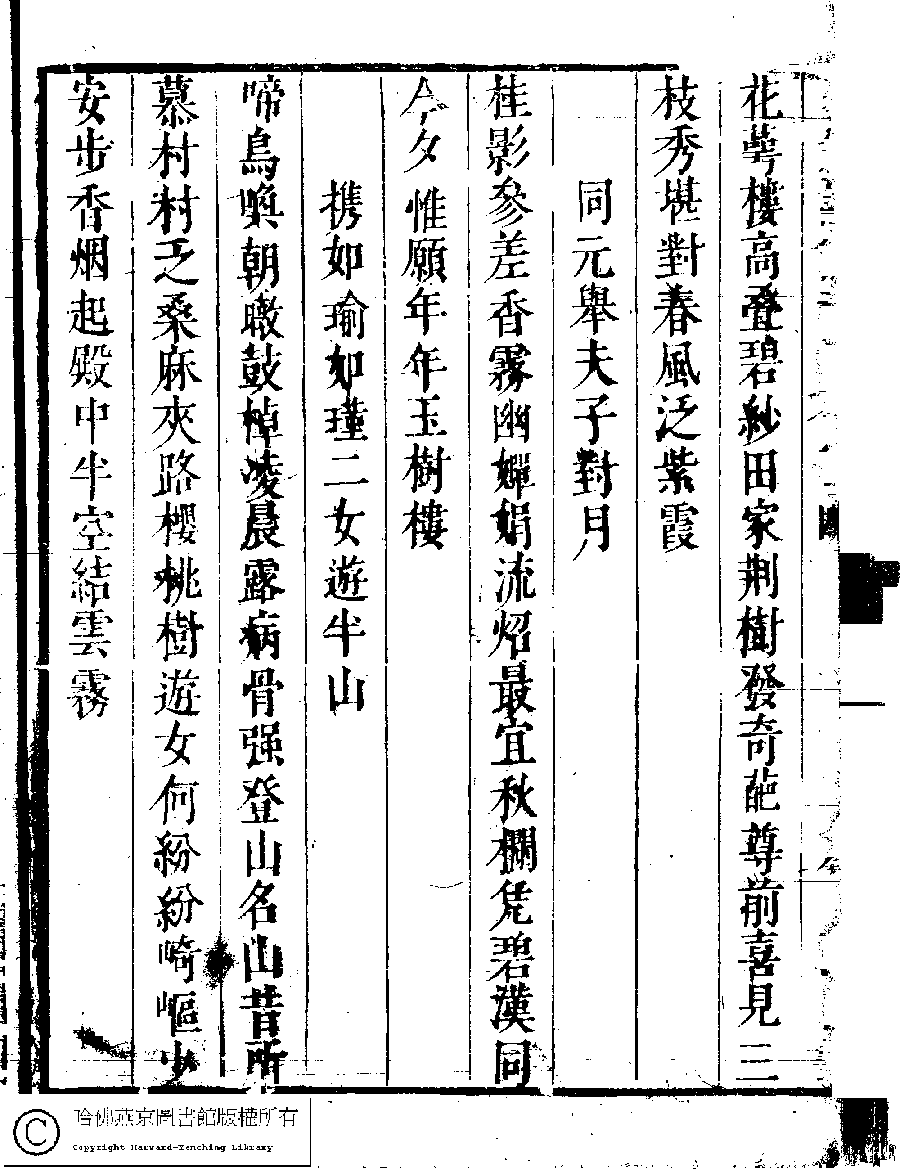 花萼樓高叠碧紗田家荆樹發奇葩尊前喜見三
枝秀堪對春風泛紫霞
同元舉夫子對月
桂影參差香霧幽嬋娟流炤最宜秋欄凭碧漢同
今夕惟願年年玉樹樓
携如瑜如瑾二女遊半山
啼鳥喚朝暾鼓棹凌晨露病骨强登山名山昔所
慕村村乏桑麻夾路櫻桃樹遊女何紛紛崎嶇少
安步香烟起殿中半空結雲霧
哈佛燕京圖書館版權所有
Copyright Harvard-Yenching Library